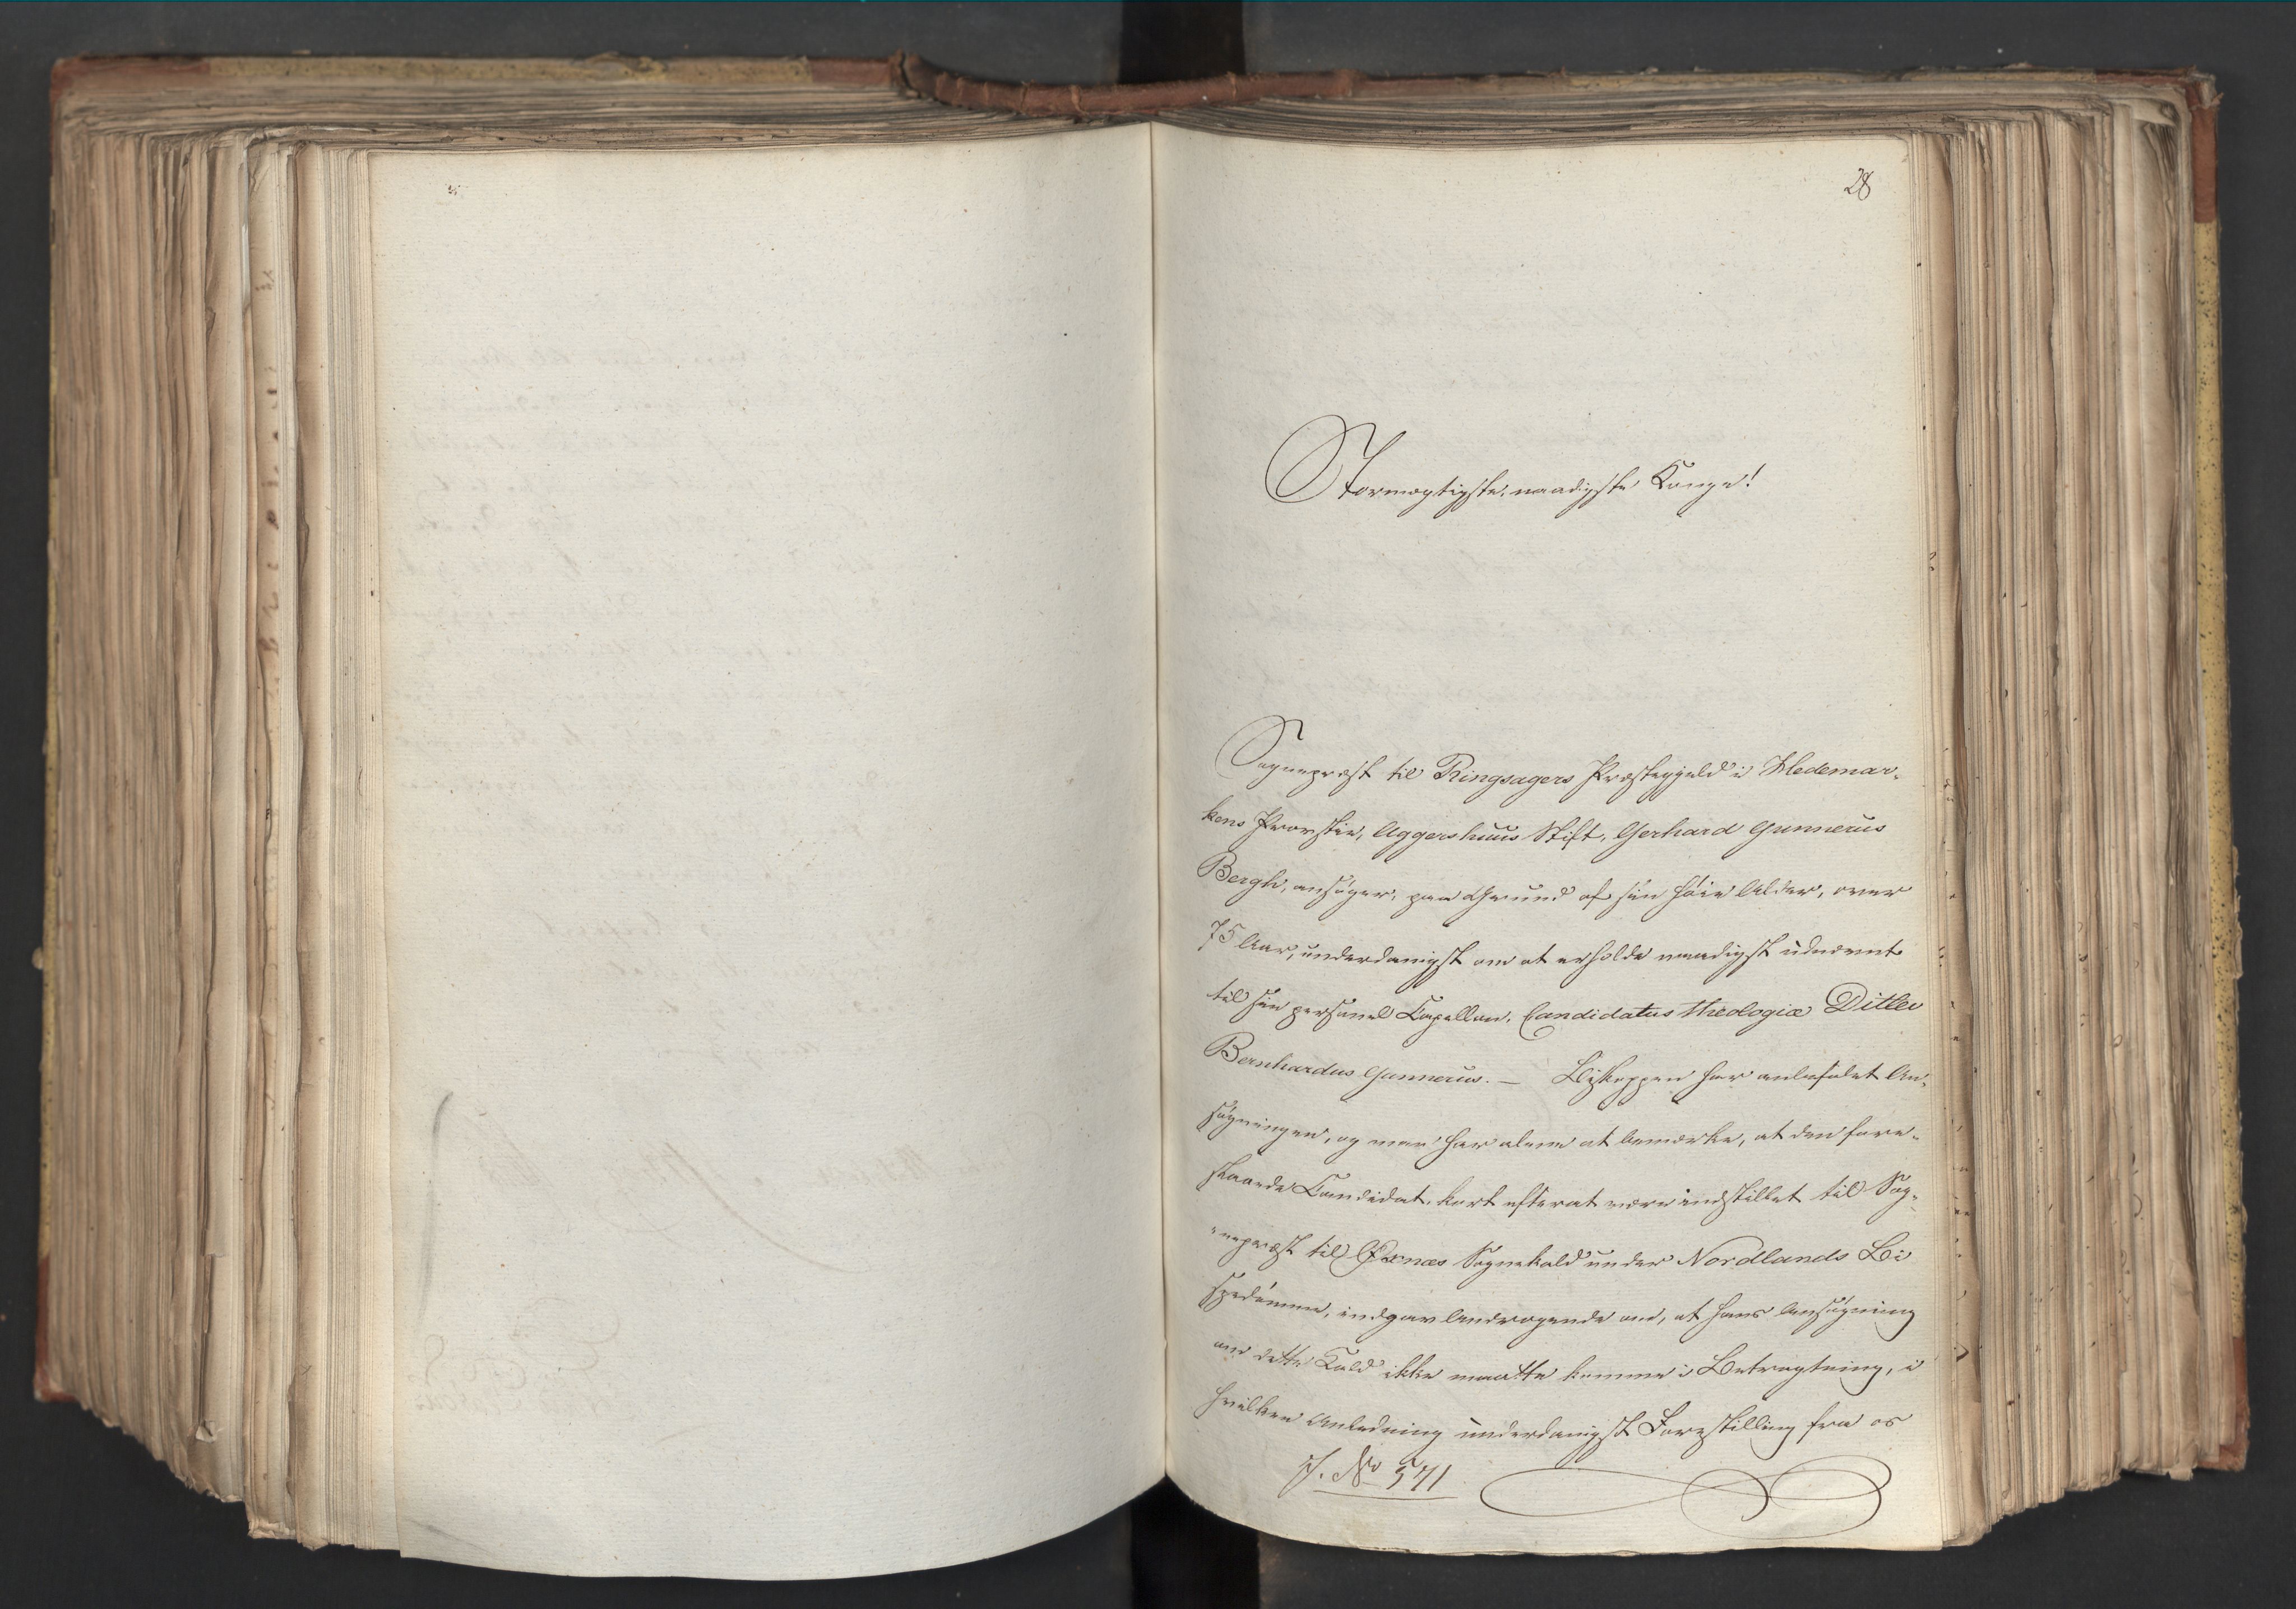 28
Stormægtigste, naadigste Konge!
Sognepræst til Ringsagers Præstegjeld i Hedemar-
kens Provstie, Aggershuus Stift, Gerhard Gunnerus
Bergh, ansøger, paa Grund af sin høie Alder, over
75 Aar, underdanigst om at erholde naadigst udnævnt
til sin personel Capellan, Candidatus theologiæ Ditlev
Bernhardus Gunnerus. — Biskoppen har anbefalet An-
søgningen, og man har alene at bemærke, at den fore-
slaaede Candidat, kort efterat være indstillet til Sog-
nepræst til Øxnæs Sognekald under Nordlands Bi
spedømme, indgav Andragende om, at hans Ansøgning
om dette Kald ikke maatte komme i Betragtning, i
hvilken Anledning underdanigst Forestilling fra os
J. No 571